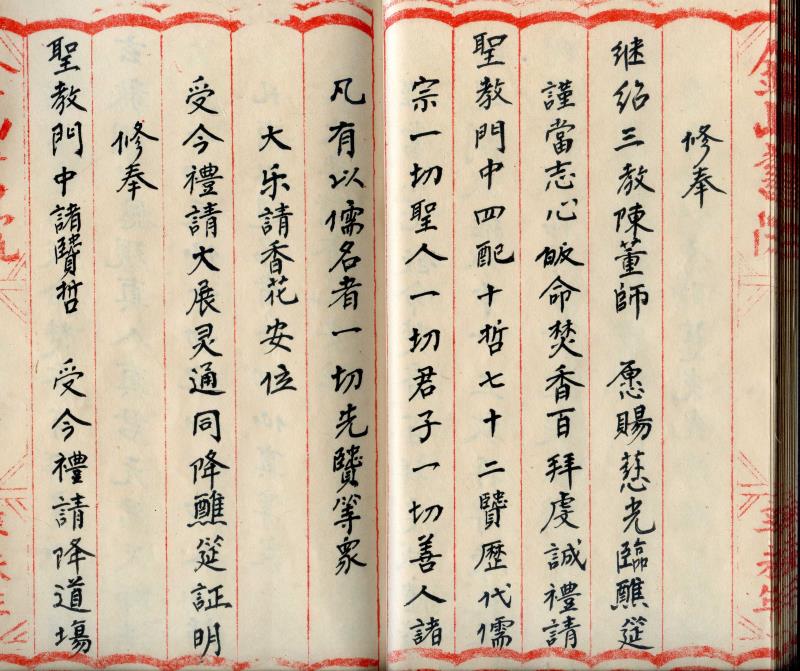 修奉
继绍三教陳董師 愿賜慈光臨醮筵
謹當志心皈命焚香百拜虔誠禮請
聖教門中四配十哲七十二賢歷代儒
宗一切聖人一切君子一切善人諸
凡有以儒名者一切先賢等衆
大乐請香花安位
受今禮請大展灵通同降醮筵証明
修奉
聖教門中諸賢哲 受今禮請降道場